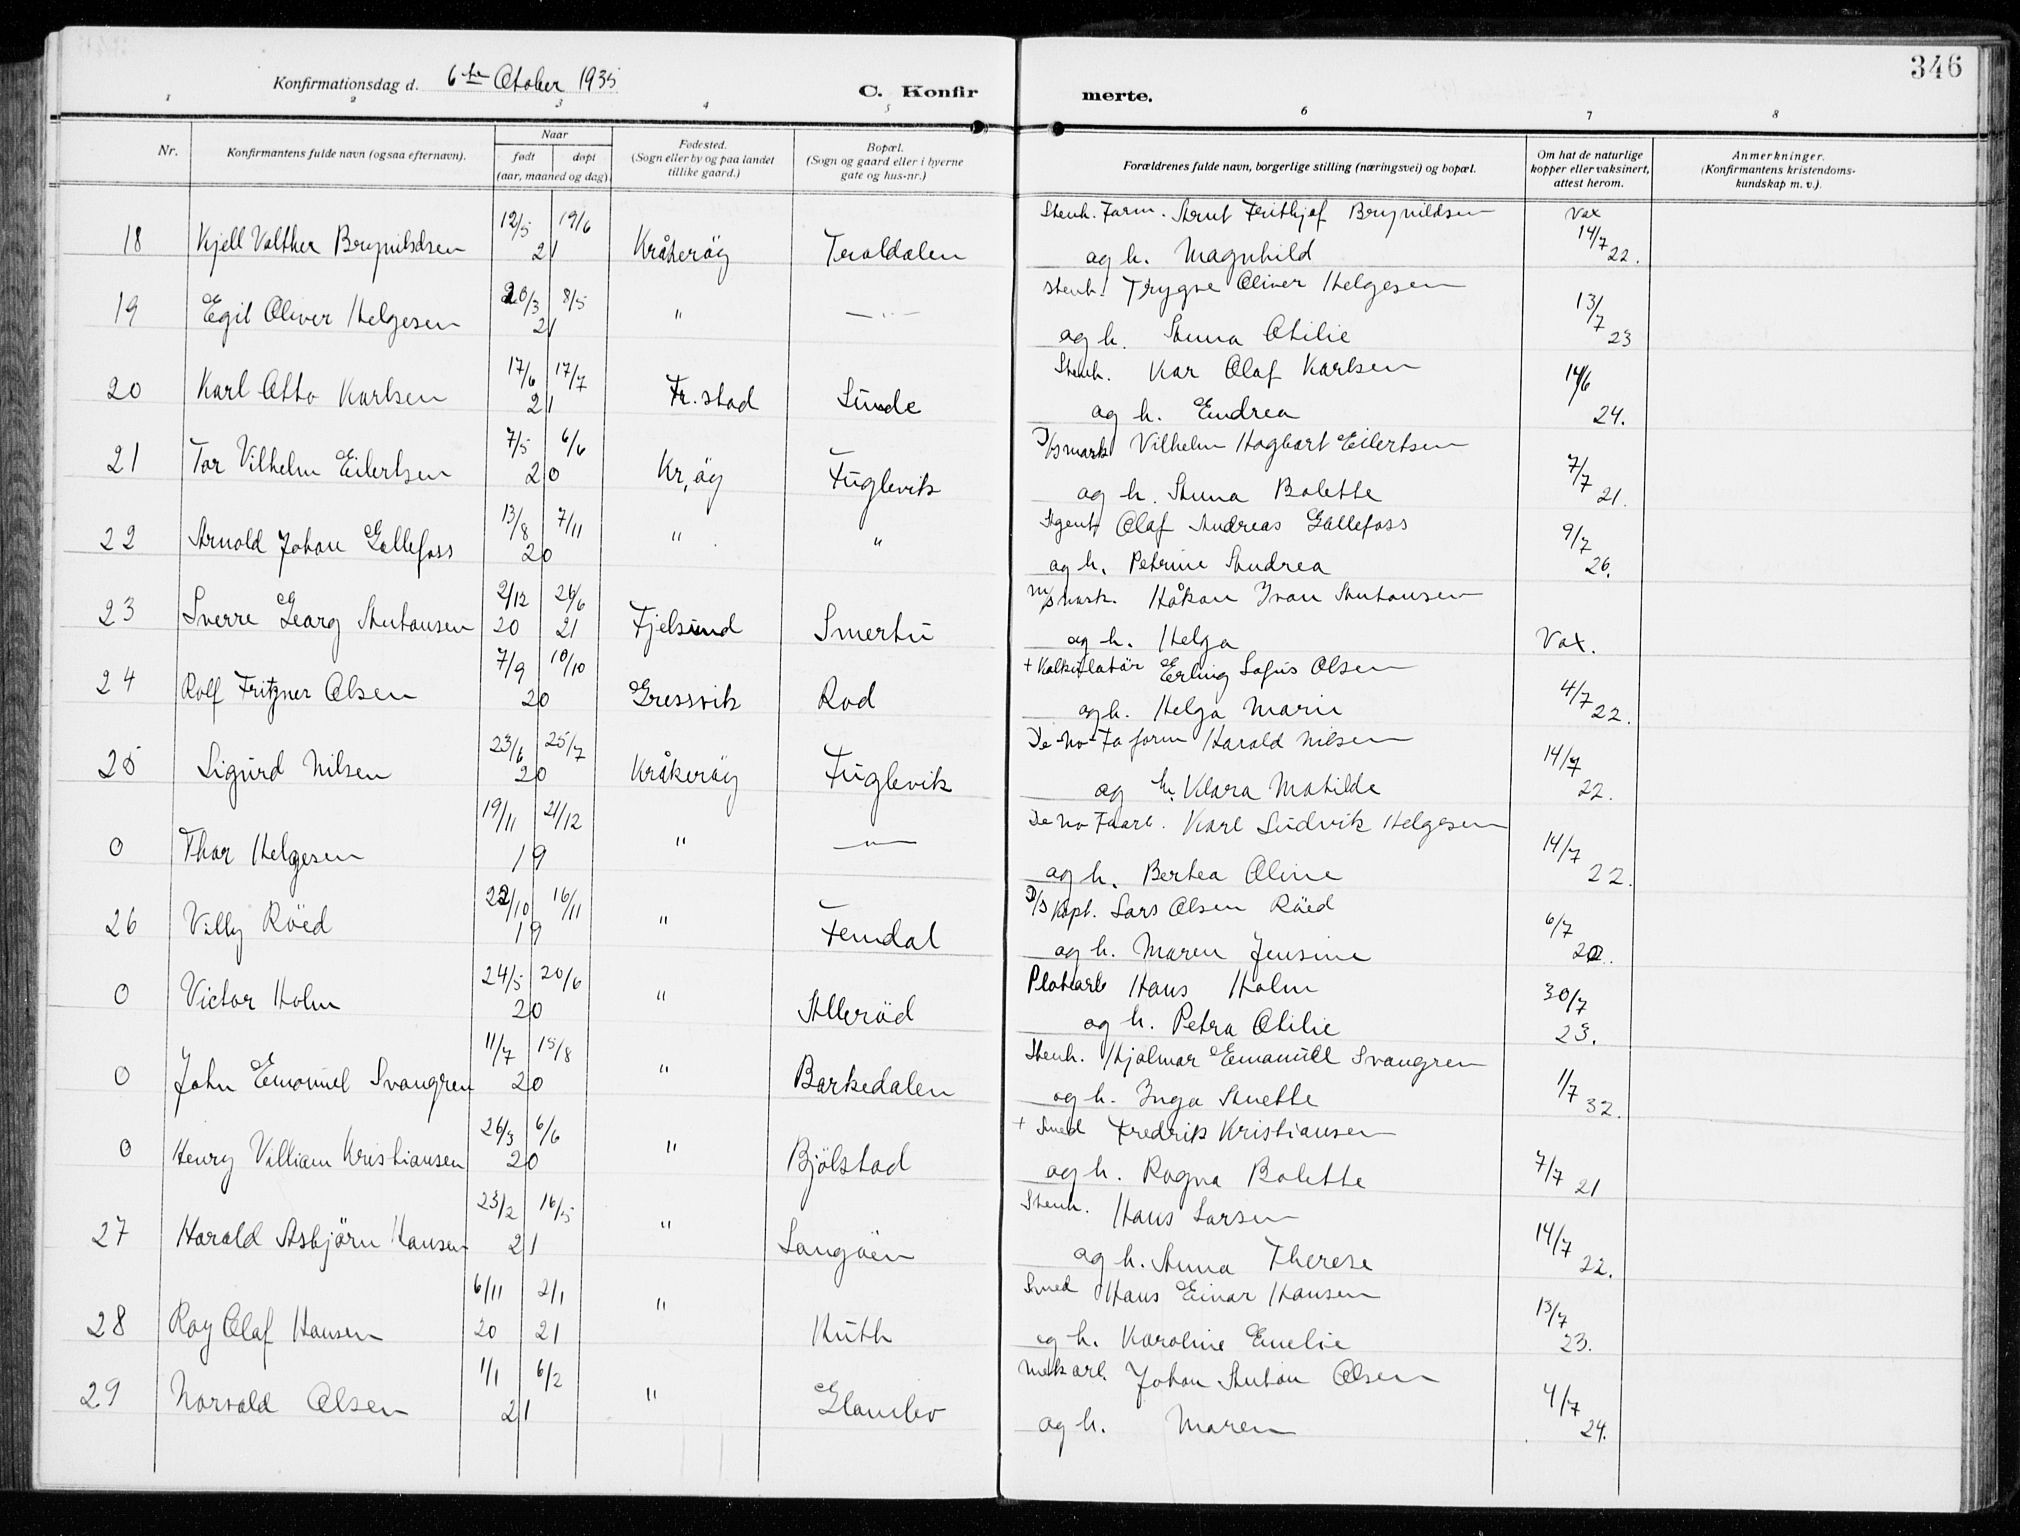 346
Konfirmationsdag d. 6te Oktober 1935
C. Konfirmerte.
1 2 3 4 5 6 7 8
Nr.
Konfirmantens fulde navn (ogsaa efternavn).
Naar
født døpt
(aar, maaned og dag)
Fødested.
(Sogn eller by og paa landet
tillike gaard.)
Bopæl.
(Sogn og gaard eller i byerne
gate og hus-nr.)
Forældrenes fulde navn, borgerlige stilling (næringsvei) og bopæl.
Om hat de naturlige
kopper eller vaksinert,
attest herom.
Anmerkninger.
(Konfirmantens kristendoms-
kundskap m. v.).
12/5 19/6 Stenh. Form. Arnt Frithjof Brynildsen Vax
18 Kjell Valther Brynildsen 21 Kråkeröy Troldalen og h. Magnhild 14/7 22.
20/3 8/5 Stenh. Trygve Oliver Helgesen
19 Egil Oliver Helgesen 21 " — " — og h. Anna Otilie 13/7 23
17/6 17/7 Stenh. Kar Olaf Karlsen
20 Karl Otto Karlsen 21 Fr.stad Lunde og h. Endrea 14/6 24.
7/5 6/6 D/smask Vilhelm Hagbart Eilertsen
21 Tor Vilhelm Eilertsen 20 Kr,öy Fuglevik og h. Anna Bolette 7/7 21.
13/8 7/11 Agent Olaf Andreas Gallefoss
22 Arnold Johan Gallefoss 20 " " og h. Petrine Andrea 9/7 26.
2/12 26/6 m/smask. Håkon Ivan Antonsen
23 Sverre Georg Antonsen 20 21 Fjelsund Smertu og h. Helga Vax.
7/9 10/10 + Kalkulatör Erling Sofus Olsen
24 Rolf Fritzner Olsen 20 Gressvik Rod og h. Helga Marie 4/7 22.
23/6 25/7 De-No-Fa form Harald Nilsen
25 Sigurd Nilsen 20 Kråkeröy Fuglevik og h. Klara Matilde 14/7 22.
19/11 21/12 De No Fa arb. Karl Ludvik Helgesen
0 Thor Helgesen 19 " — " — og h. Bertea Oline 14/7 22.
22/10 16/11 D/S Kapt. Lars Olsen Röed
26 Villy Röed 19 " Femdal og h. Maren Jensine 6/7 20.
24/5 20/6 Platearb Hans Holm
0 Victor Holm 20 " Alleröd og h. Petra Otilie 30/7 23.
11/7 15/8 Stenh. Hjalmar Emanuell Svangren
0 John Emanuel Svangren 20 " Barkedalen og h. Inga Anette 1/7 32.
26/3 6/6 + Smed Fredrik Kristiansen
0 Henry Villiam Kristiansen 20 " Bjölstad og h. Ragna Bolette 7/7 21
23/2 16/5 Stenh. Hans Larsen
27 Harald Asbjörn Hansen 21 " Langöen og h. Anna Therese 14/7 22.
6/11 2/1 Smed Hans Einar Hansen
28 Roy Olaf Hansen 20 21 " Huth og h. Karoline Emelie 13/7 23.
1/1 6/2 Mek arb. Johan Anton Olsen
29 Norvald Olsen 21 " Glombo og h. Maren 4/7 24.